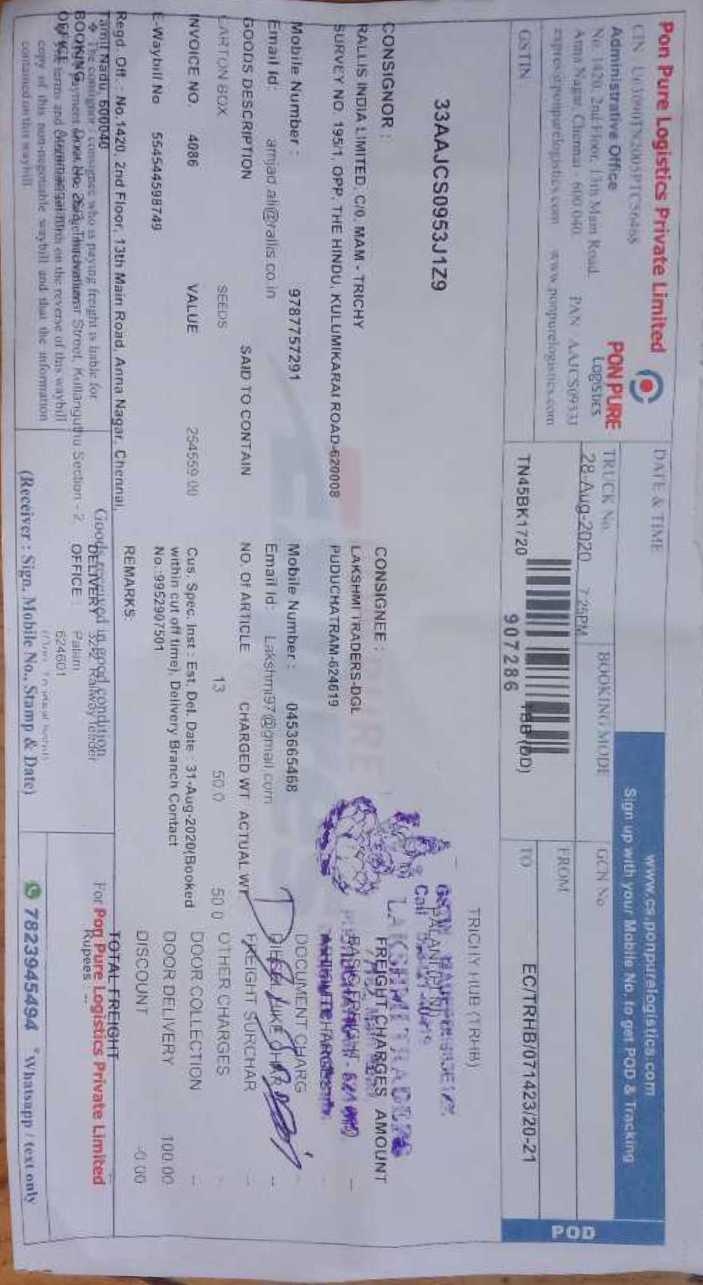 Pon Pure Logistics Private Limited
CIN
Administrative Office
No. 1420, 2nd Floor, 13th Main Road,
Anna Nagar, Chennai - 600 040.
www.ponpurelogistics.com
GSTIN
33AAJCS0953J1Z9
PON PURE
LOGISTICS
DATE & TIME
28-Aug-2020 7:25PM
TRUCK No.
TN45BK1720
BOOKING MODE
TBB (DD)
907286
www.cs.ponpurelogistics.com
Sign up with your Mobile No. to get POD & Tracking
GCN No
EC/TRHB/071423/20-21
FROM
TRICHY HUB (TRHB)
TO
POD
CONSIGNOR :
RALLIS INDIA LIMITED, C/0, MAM - TRICHY
SURVEY NO. 195/1, OPP. THE HINDU, KULUMIKARAI ROAD-620008
Mobile Number : 9787757291
Email Id: amjad.ali@rallis.co.in
CONSIGNEE :
LAKSHMI TRADERS-DGL
PUDUCHATRAM-624619
Mobile Number : 0453665468
Email Id: Lakshmi97@gmail.com
GOODS DESCRIPTION SAID TO CONTAIN NO. Of ARTICLE CHARGED WT ACTUAL WT
CARTON BOX SEEDS 13 50.0 50.0
INVOICE NO. 4086 VALUE 254559.00
E-Waybill No 554544598749
Cus. Spec. Inst : Est. Del. Date : 31-Aug-2020(Booked
within cut off time), Delivery Branch Contact
No.:9952907501
REMARKS:
LAKSHMI TRADERS
FREIGHT CHARGES AMOUNT
BASIC FREIGHT --
DOCUMENT CHARG --
FREIGHT SURCHAR --
OTHER CHARGES
DOOR COLLECTION --
DOOR DELIVERY 100.00
DISCOUNT -0.00
TOTAL FREIGHT
Rupees ---
For Pon Pure Logistics Private Limited
Regd. Off : No.1420, 2nd Floor, 13th Main Road, Anna Nagar, Chennai,
Tamil Nadu, 600040
The consignor / consignee who is paying freight is liable for
BOOKING
OFFICE
copy of this non-negotiable waybill and that the information
contained on this waybill
Goods received in good condition
DELIVERY
OFFICE : Palani
624601
(Receiver : Sign, Mobile No., Stamp & Date)
7823945494 *Whatsapp / text only